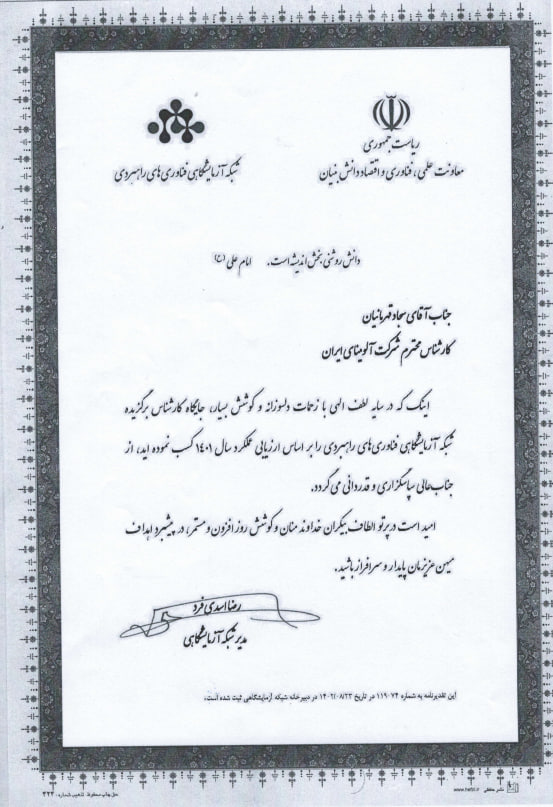 ریاست جمهوری
معاونت علمی، فناوری و اقتصاد دانش بنیان
شبکه آزمایشگاهی فناوری‌های راهبردی
دانش روشنی بخش اندیشه است. امام علی (ع)
جناب آقای سجاد قهرمانیان
کارشناس محترم شرکت آلومینای ایران
اینک که در سایه لطف الهی با زحمات دلسوزانه و کوشش بسیار، جایگاه کارشناس برگزیده
شبکه آزمایشگاهی فناوری‌های راهبردی را بر اساس ارزیابی عملکرد سال ۱۴۰۱ کسب نموده اید، از
جناب‌عالی سپاسگزاری و قدردانی می‌گردد.
امید است در پرتو الطاف بیکران خداوند منان و کوشش روزافزون و مستمر، در پیشبرد اهداف
میهن عزیزمان پایدار و سرافراز باشید.
رضا اسدی فرد
مدیر شبکه آزمایشگاهی
این تقدیرنامه به شماره ۱۱۹۰۷۴ در تاریخ ۱۴۰۲/۰۸/۲۳ در دبیرخانه شبکه آزمایشگاهی ثبت شده است.
حق چاپ محفوظ تذهیب شماره: ۴۲۲